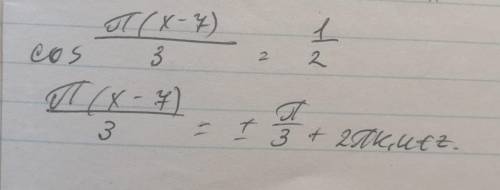 cos π(x-7)/3 = 1/2
π(x-7)/3 = ± π/3 + 2πk, k∈z.